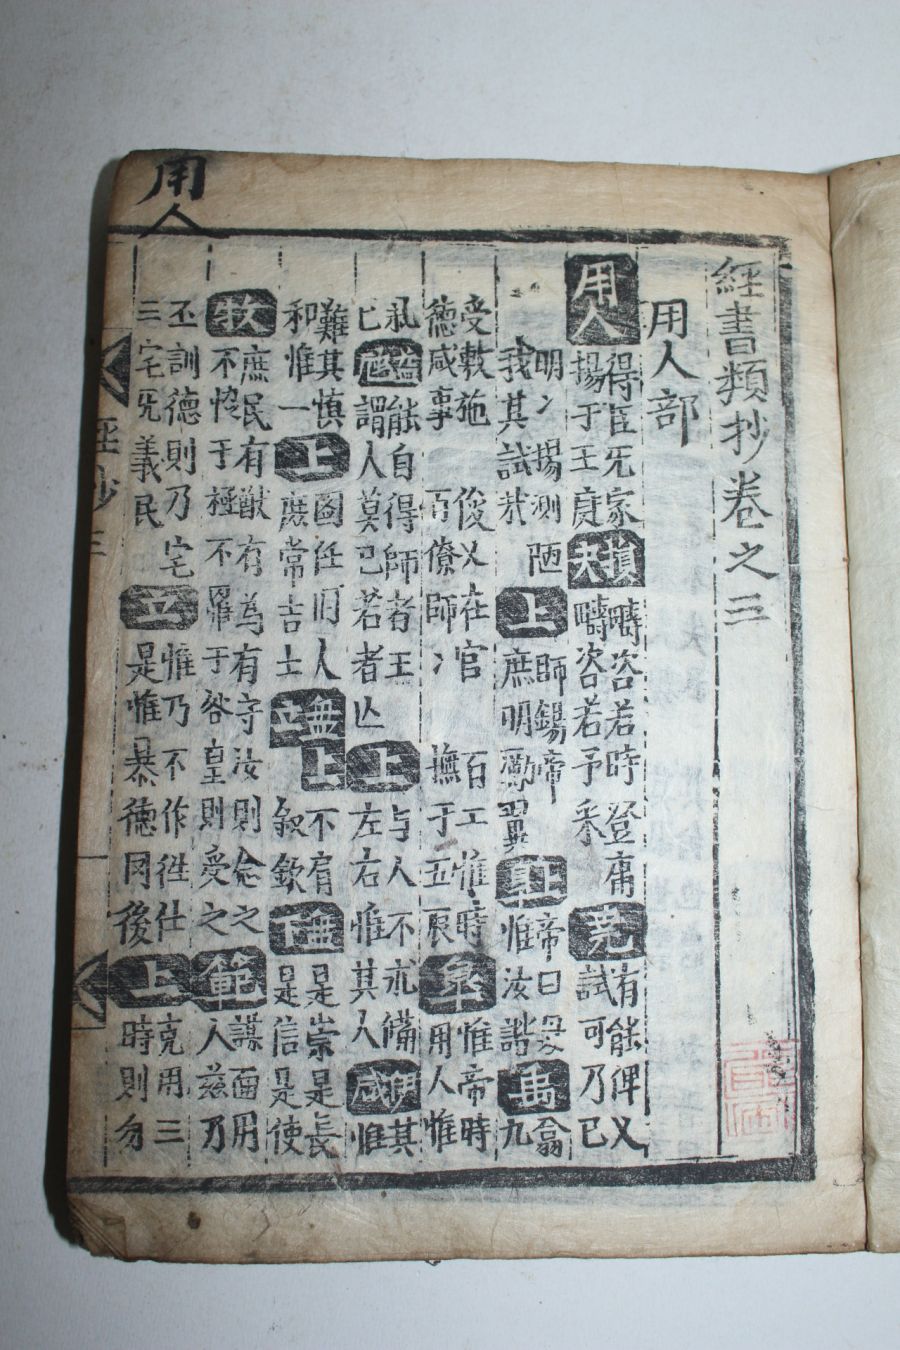 經書類抄卷之三
用人部
用人
得臣无家
揚于王庭
損夬
疇咨若時登庸
疇咨若予采
堯
有能俾乂
試可乃已
明〃揚測陋
我其試哉
上
師錫帝
庶明勵翼
帝曰毋
惟汝諧
禹
翕
九
受敷施
德咸事
俊乂在官
百僚師〃
百工惟時
撫于五辰
皐
惟帝時
用人惟
己
能自得師者王
謂人莫己若者亾
上
与人不求備
左右惟其人
咸
其
惟
難其慎
和惟一
上
圖任旧人
庶常吉士
立
上
不肯
敘欽
是崇是長
是信是使
牧
庶民有猷有為有守汝則念之
不恊于極不罹于咎皇則受之
範
謀面用
人兹乃
丕訓德則乃宅
三宅无義民
立
惟乃不作徃任
是惟暴德罔後
上
克用三
時則勿
經抄三
用人